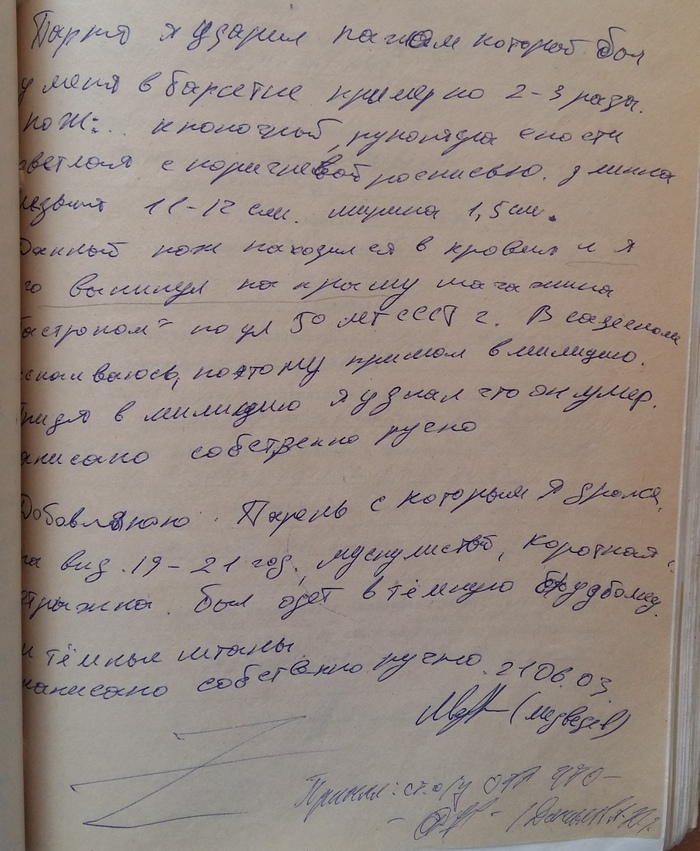 Парня я ударил ножом который был
у меня в барсетке примерно 2-3 раза.
нож: кнопочный, рукоятка
светлая с коричневой росписью. длинна
лезвия 11-12 см. ширина 1,5 см.
Данный нож находился в крови и я
го выкинул на крышу магазина
астроном" по ул 50 лет СССР г. В содеяном
, поэтому пришол в милицию.
Придя в милицию я узнал что он умер.
написано собственно ручно
Добовляю: Парень с которым я дрался,
на вид 19-21 год, мускулистый, короткая
стрижка. был одет в тёмную
и тёмные штаны.
написано собственно ручно. 21.06.03.
(Медведев)
Принял: ст. о/у